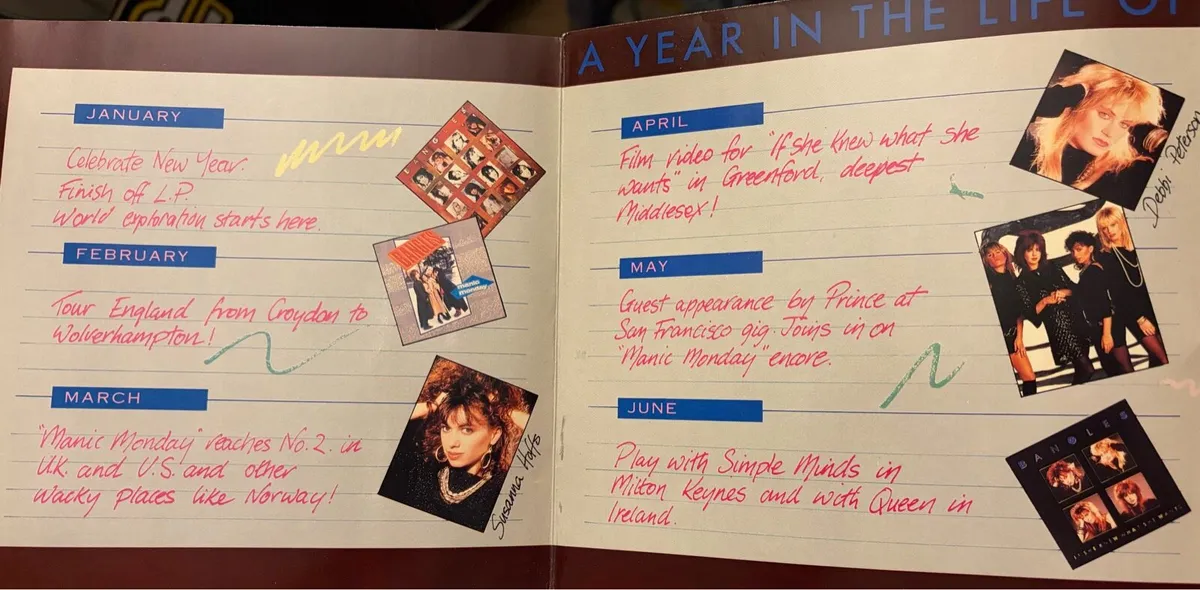 A YEAR IN THE LIFE OF
JANUARY
Celebrate New Year.
Finish off L.P.
World exploration starts here.
FEBRUARY
Tour England from Croydon to
Wolverhampton!
MARCH
"Manic Monday" reaches No.2. in
U.K. and U.S. and other
wacky places like Norway!
BANGLES
manic
monday
Susanna Hoffs
APRIL
Film video for "If she knew what she
wants" in Greenford, deepest
Middlesex!
MAY
Guest appearance by Prince at
San Francisco gig. Joins in on
"Manic Monday" encore.
JUNE
Play with Simple Minds in
Milton Keynes and with Queen in
Ireland.
Debbi Peterson
BANGLES